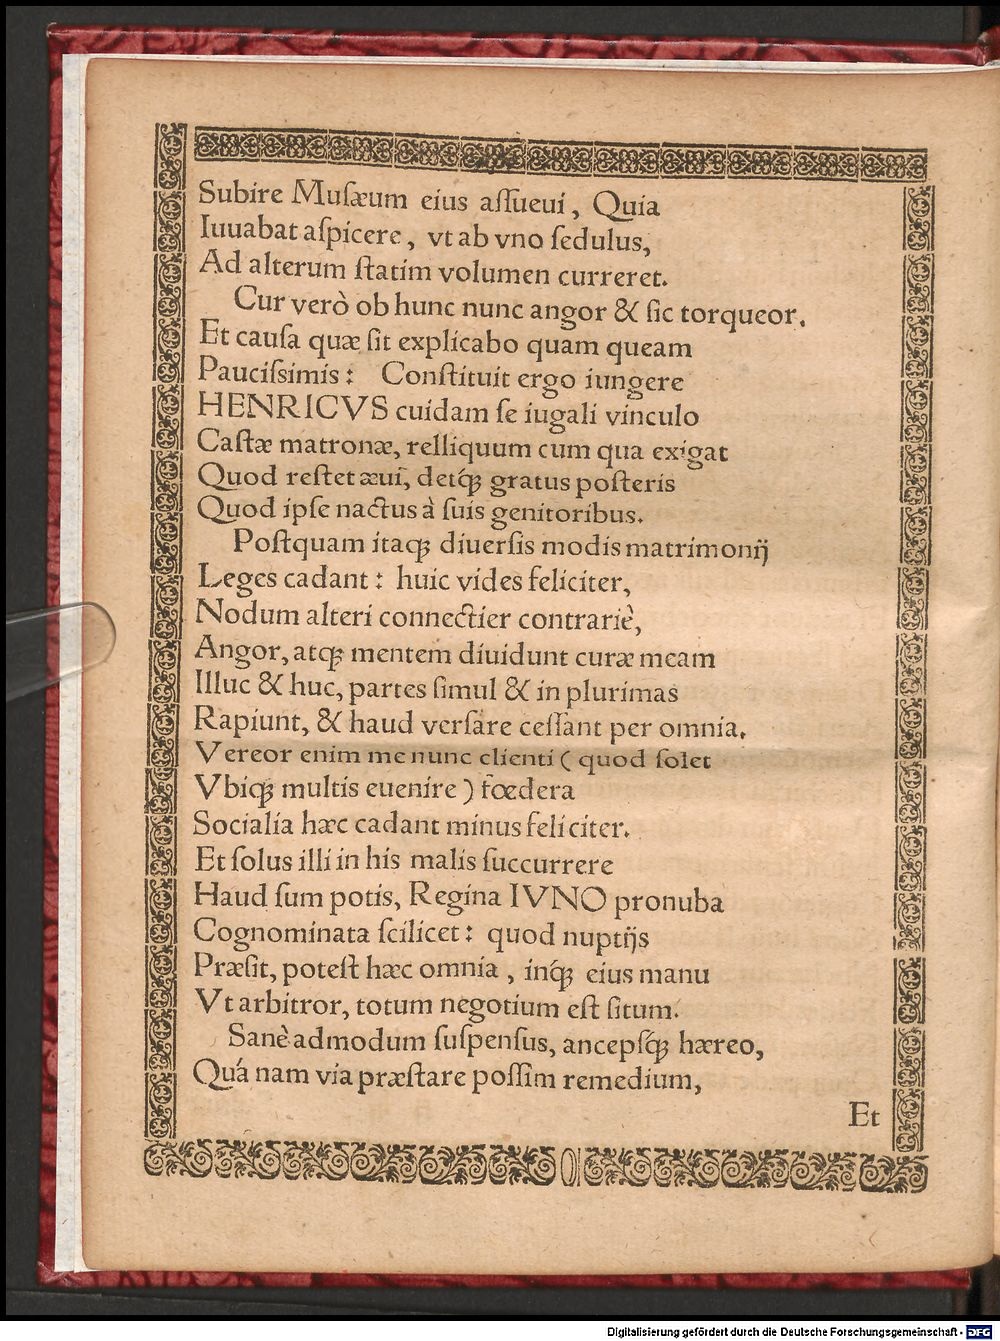 Subire Muſæum eius aſſueui, Quia
Iuuabat aſpicere, vt ab vno ſedulus,
Ad alterum ſtatim volumen curreret.
Cur verò ob hunc nunc angor & ſic torqueor.
Et cauſa quæ ſit explicabo quam queam
Pauciſsimis: Conſtituit ergo iungere
HENRICVS cuidam ſe iugali vinculo
Caſtæ matronæ, relliquum cum qua exigat
Quod reſtet æui, detq́ꝫ gratus poſteris
Quod ipſe nactus à ſuis genitoribus.
Poſtquam itaqꝫ diuerſis modis matrimonij
Leges cadant: huic vides feliciter,
Nodum alteri connectier contrariè,
Angor, atqꝫ mentem diuidunt curæ meam
Illuc & huc, partes ſimul & in plurimas
Rapiunt, & haud verſare ceſſant per omnia.
Vereor enim me nunc clienti (quod ſolet
Vbiqꝫ multis euenire) fœdera
Socialia hæc cadant minus feliciter.
Et ſolus illi in his malis ſuccurrere
Haud ſum potis, Regina IVNO pronuba
Cognominata ſcilicet: quod nuptijs
Præſit, poteſt hæc omnia, inq́ꝫ eius manu
Vt arbitror, totum negotium eſt ſitum.
Sanè admodum ſuſpenſus, ancepſq́ꝫ hæreo,
Quá nam via præſtare poſſim remedium,
Et
Digitalisierung gefördert durch die Deutsche Forschungsgemeinschaft - DFG